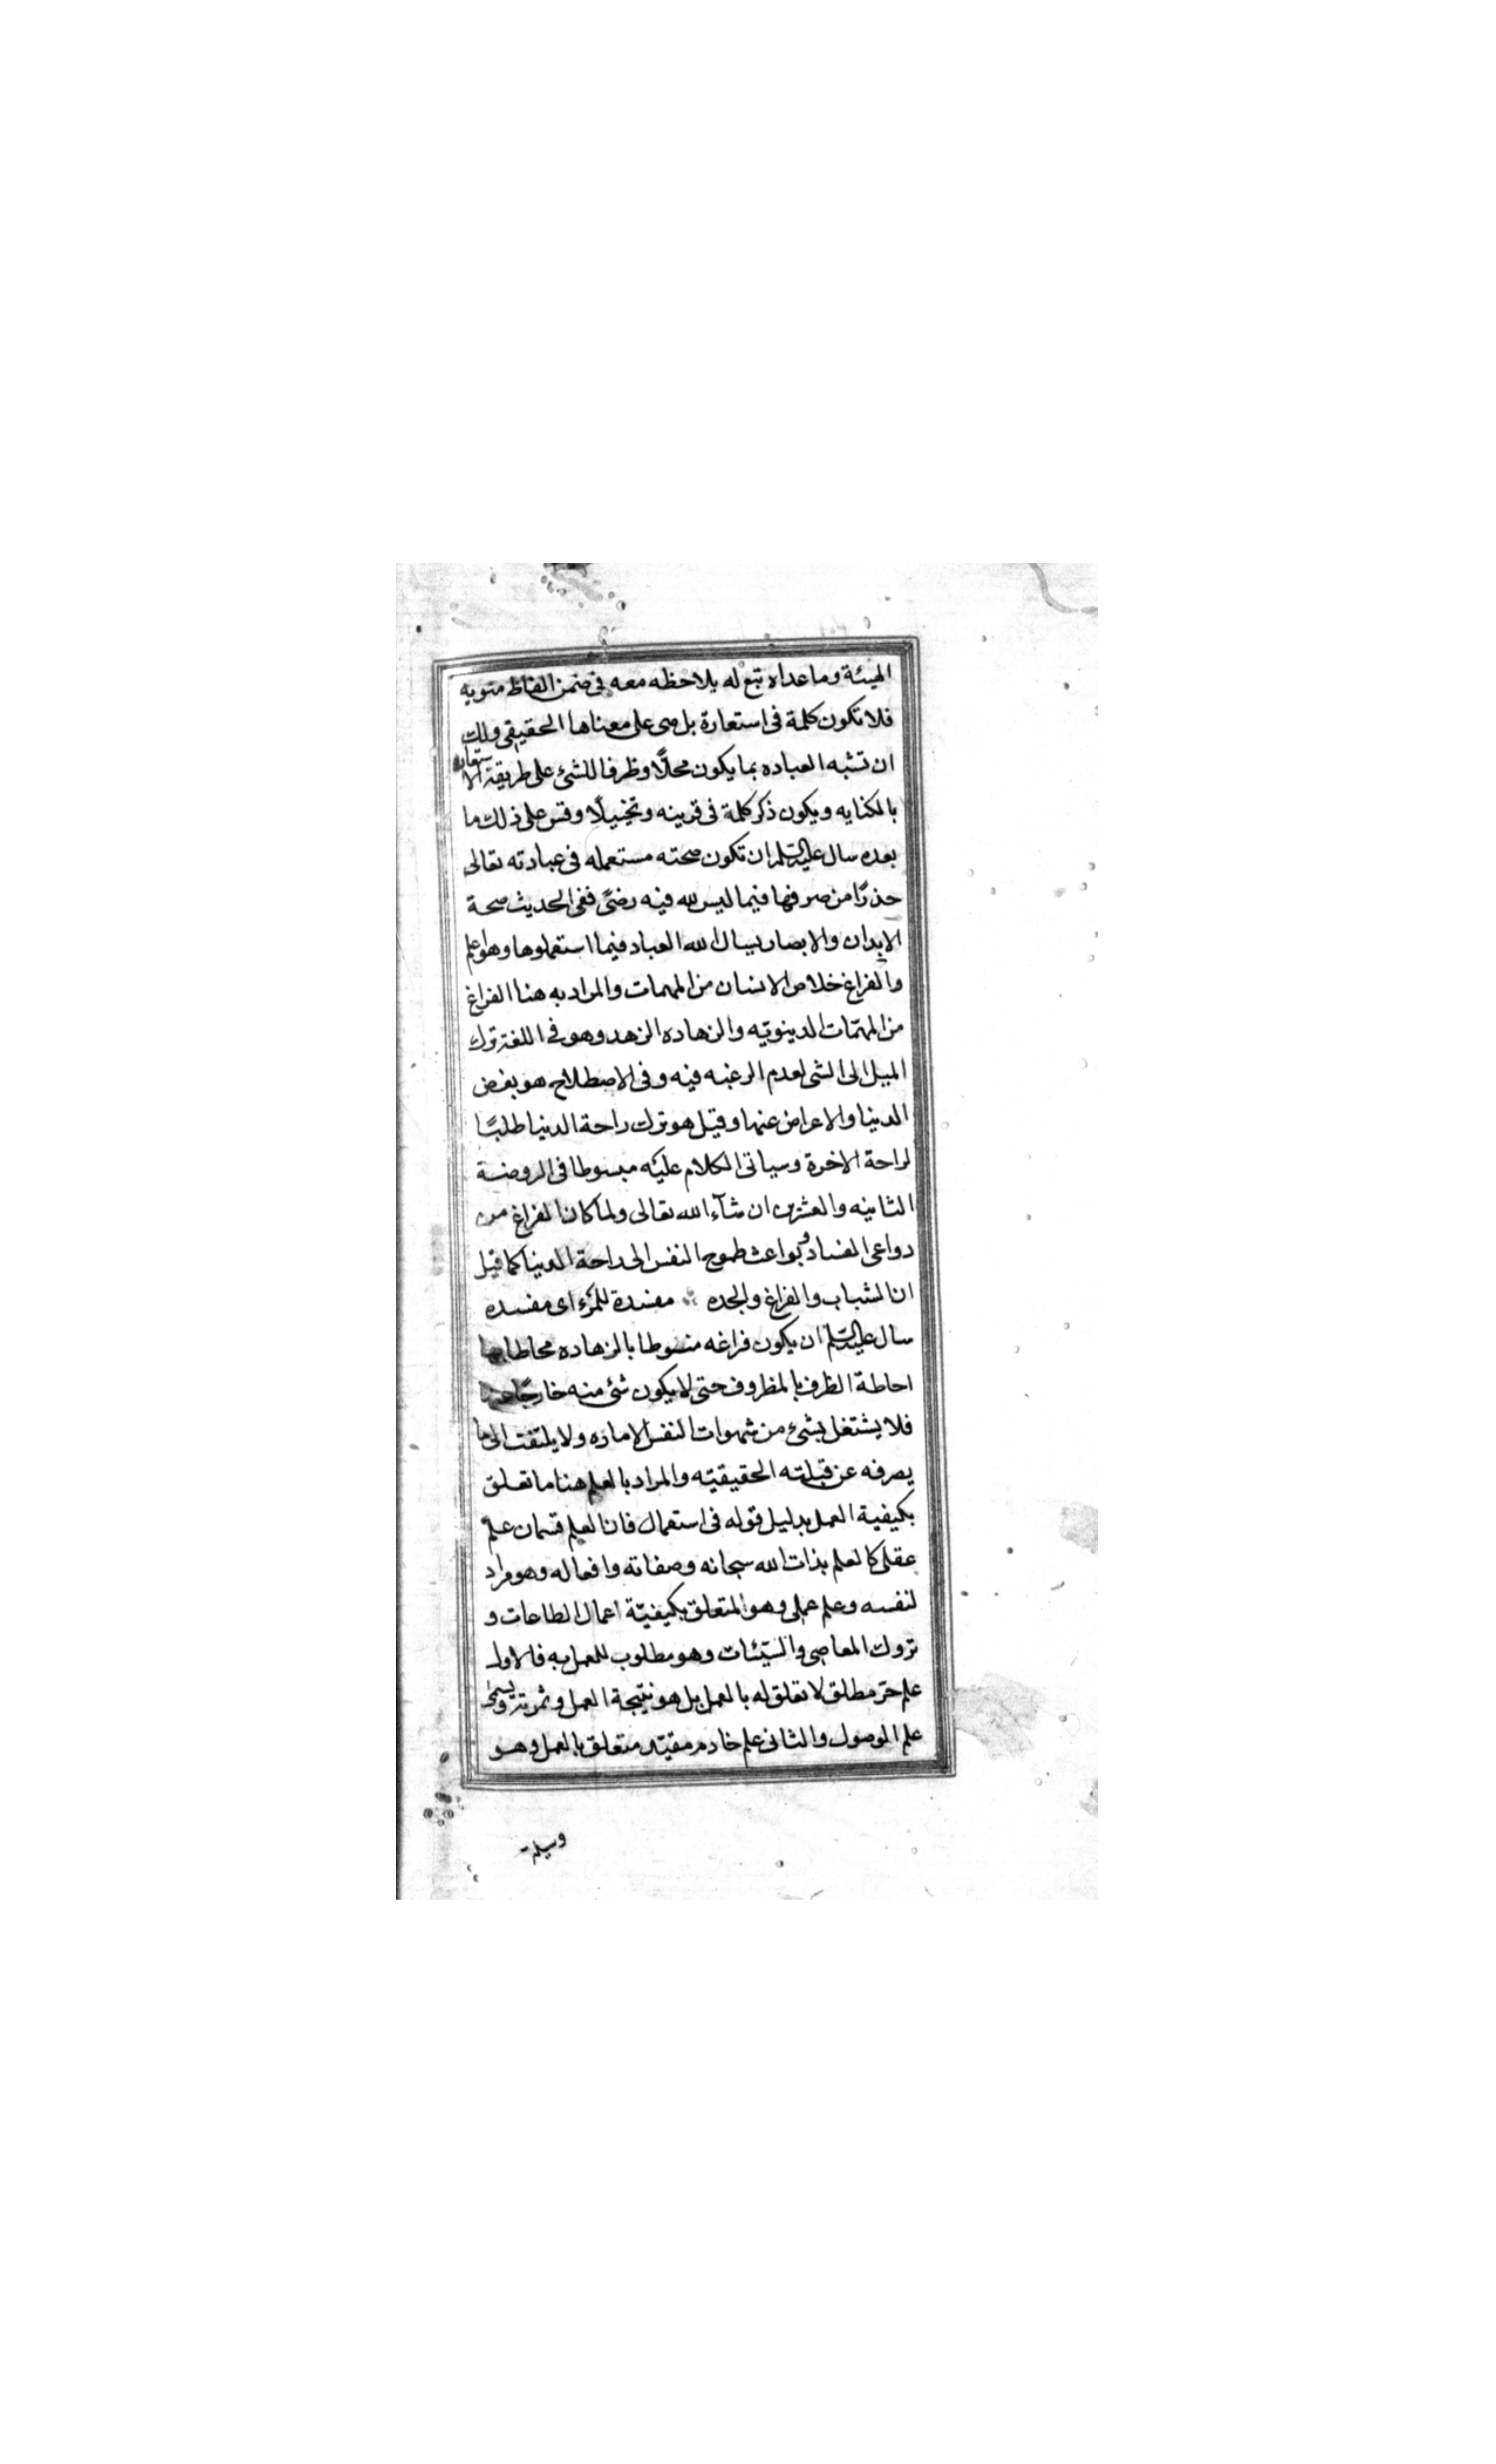 الهيئة وما عداه تبع له يلاحظه معه في ضمن الفاظ منويه
فلا تكون كلمة في استعارة بل هي على معناها الحقيقي ولك
ان تشبه العباده بما يكون محلًا وظرفا للشئ على طريقة الاستعاره
بالكنايه ويكون ذكر كلمة في قرينه وتخييلًا وقس على ذلك ما
بعده سال عليه السلم ان تكون صحته مستعمله في عبادته تعالى
حذرًا من صرفها فيما ليس لله فيه رضىً ففي الحديث صحة
الابدان والابصار يسال الله العباد فيما استعملوها وهو اعلم
والفراغ خلاص الانسان من المهمات والمراد به هنا الفراغ
من المهمّات الدينويّه والزهاده الزهد وهو في اللغة ترك
الميل الى الشي لعدم الرغبه فيه وفي الاصطلاح هو بغض
الدنيا والاعراض عنها وقيل هو ترك راحة الدنيا طلبًا
لراحة الاخرة وسياتي الكلام عليه مبسوطا في الروضة
الثانيه والعشرين ان شآء الله تعالى ولما كان الفراغ من
دواعي الفساد وبواعث طموح النفس الى راحة الدنيا كما قيل
ان الشباب والفراغ والجده ؞ مفسدة للمرء اى مفسده
سال عليه السلم ان يكون فراغه منوطا بالزهاده محاطا بها
احاطة الظرف بالمظروف حتى لا يكون شئ منه خارجًا عنها
فلا يشتغل بشئ من شهوات النفس الاماره ولا يلتفت الى ما
يصرفه عن قبلته الحقيقيّه والمراد بالعلم هنا ما تعلق
بكيفية العمل بدليل قوله في استعمال فان العلم قسمان علم
عقلي كالعلم بذات الله سبحانه وصفاته وافعاله وهو مراد
لنفسه وعلم عملي وهو المتعلق بكيفيّة اعمال الطاعات و
تروك المعاصي والسّيئات وهو مطلوب للعمل به فالاول
علم حرّ مطلق لا تعلق له بالعمل بل هو نتيجة العمل وثمرته ويسمى
علم الوصول والثاني علم خادم مقيّد متعلق بالعمل وهو
وسيلة